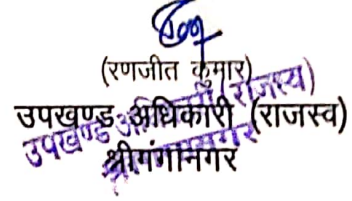 (रणजीत कुमार)
उपखण्ड अधिकारी (राजस्व)
श्रीगंगानगर
उपखण्ड अधिकारी (राजस्व)